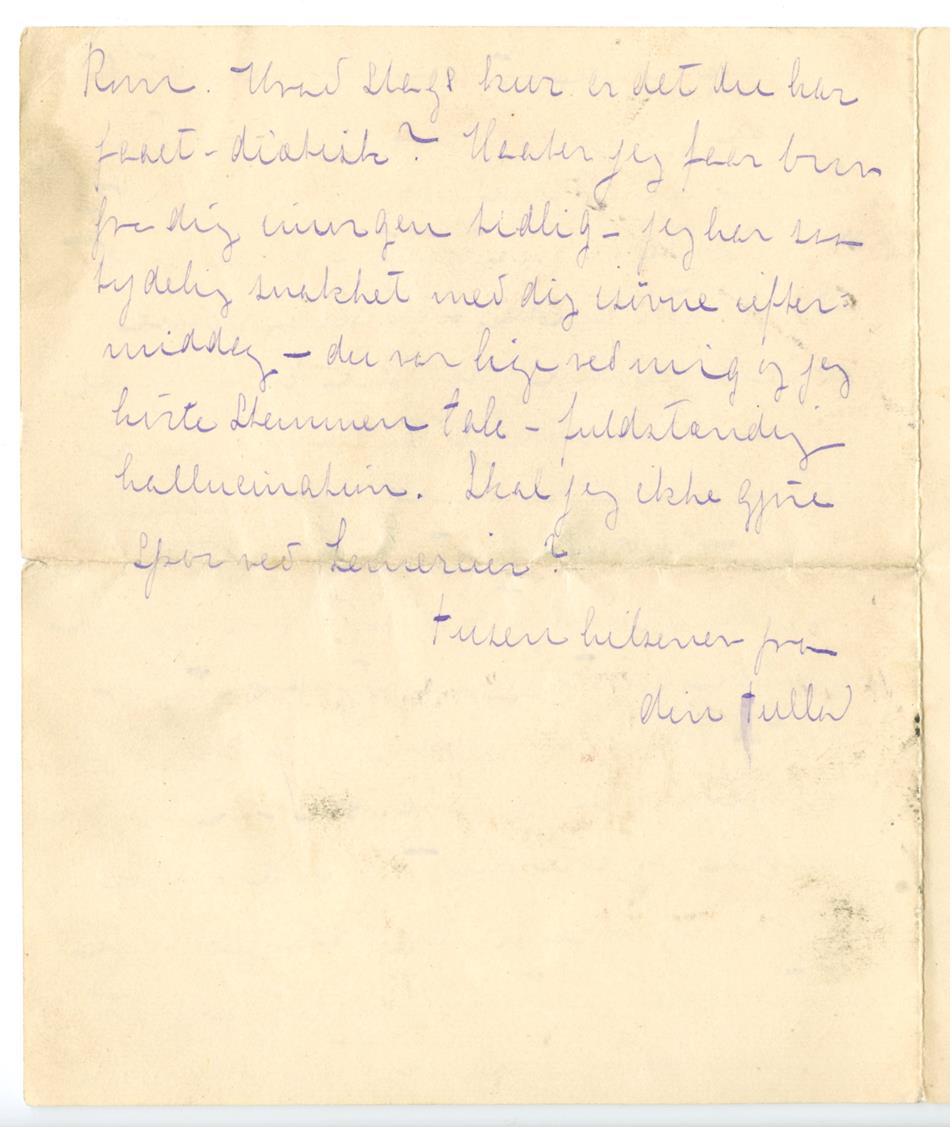 Rom. Hvad Slags kur er det du har
faaet - diætisk? Haaber jeg faar brev
fra dig imorgen tidlig - jeg har saa
tydelig snakket med dig isøvne iefter-
middag - du var lige ved mig og jeg
hørte Stemmen tale - fuldstændig
hallucination. Skal jeg ikke gjøre
Spor ved Lemerier?
tusen hilsener fra
din tulla